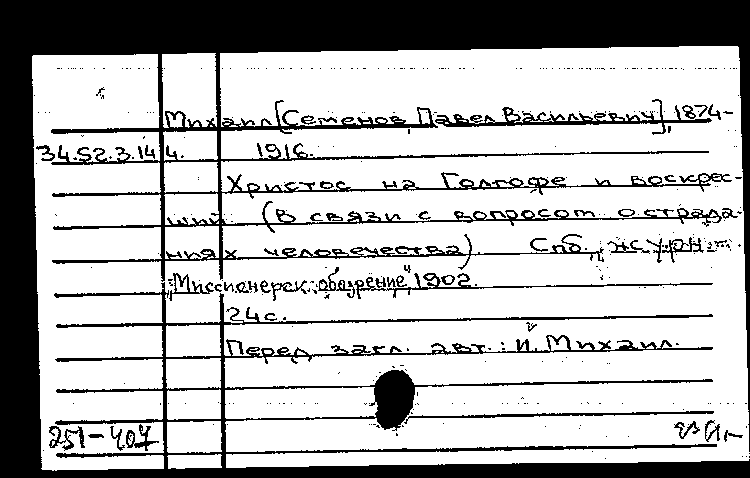 Михаил [Семенов, Павел Васильевич], 1874-
34.52.3.144. 1916.
Христос на Голгофе и воскрес-
ший. (В связи с вопросом о страда-
ниях человечества). Спб., журн.
"Миссионерск. обозрение", 1902.
24с.
Перед загл. авт.: И. Михаил.
251-407